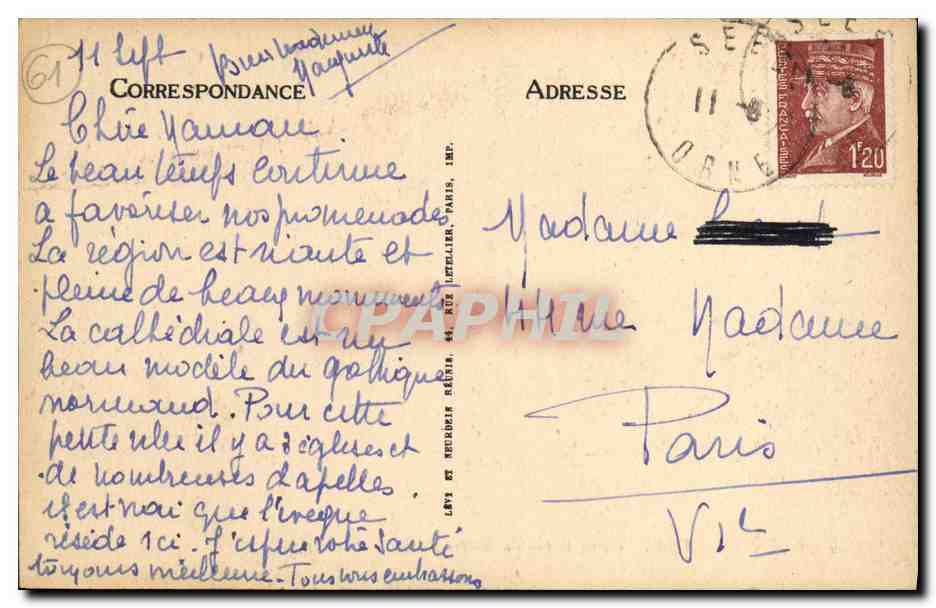 61
11 Sept
Marguerite
CORRESPONDANCE
Chère Maman.
Le beau temps continue
a favoriser nos promenades
La région est riante et
pleine de beaux monuments
La cathédrale est un
beau modèle du gothique
normand. Pour cette
petite ville il y a 3 églises et
de nombreuses chapelles.
il est vrai que l'évêque
réside ici. J'espère votre santé
toujours meilleure. Tous vous embrassons
LÉVY ET NEURDEIN RÉUNIS, 44, RUE LETELLIER, PARIS, IMP.
ADRESSE
SEES
11
ORNE
POSTES FRANÇAISES
1F20
Madame
Madame
Paris
VIe
CPAPHIL